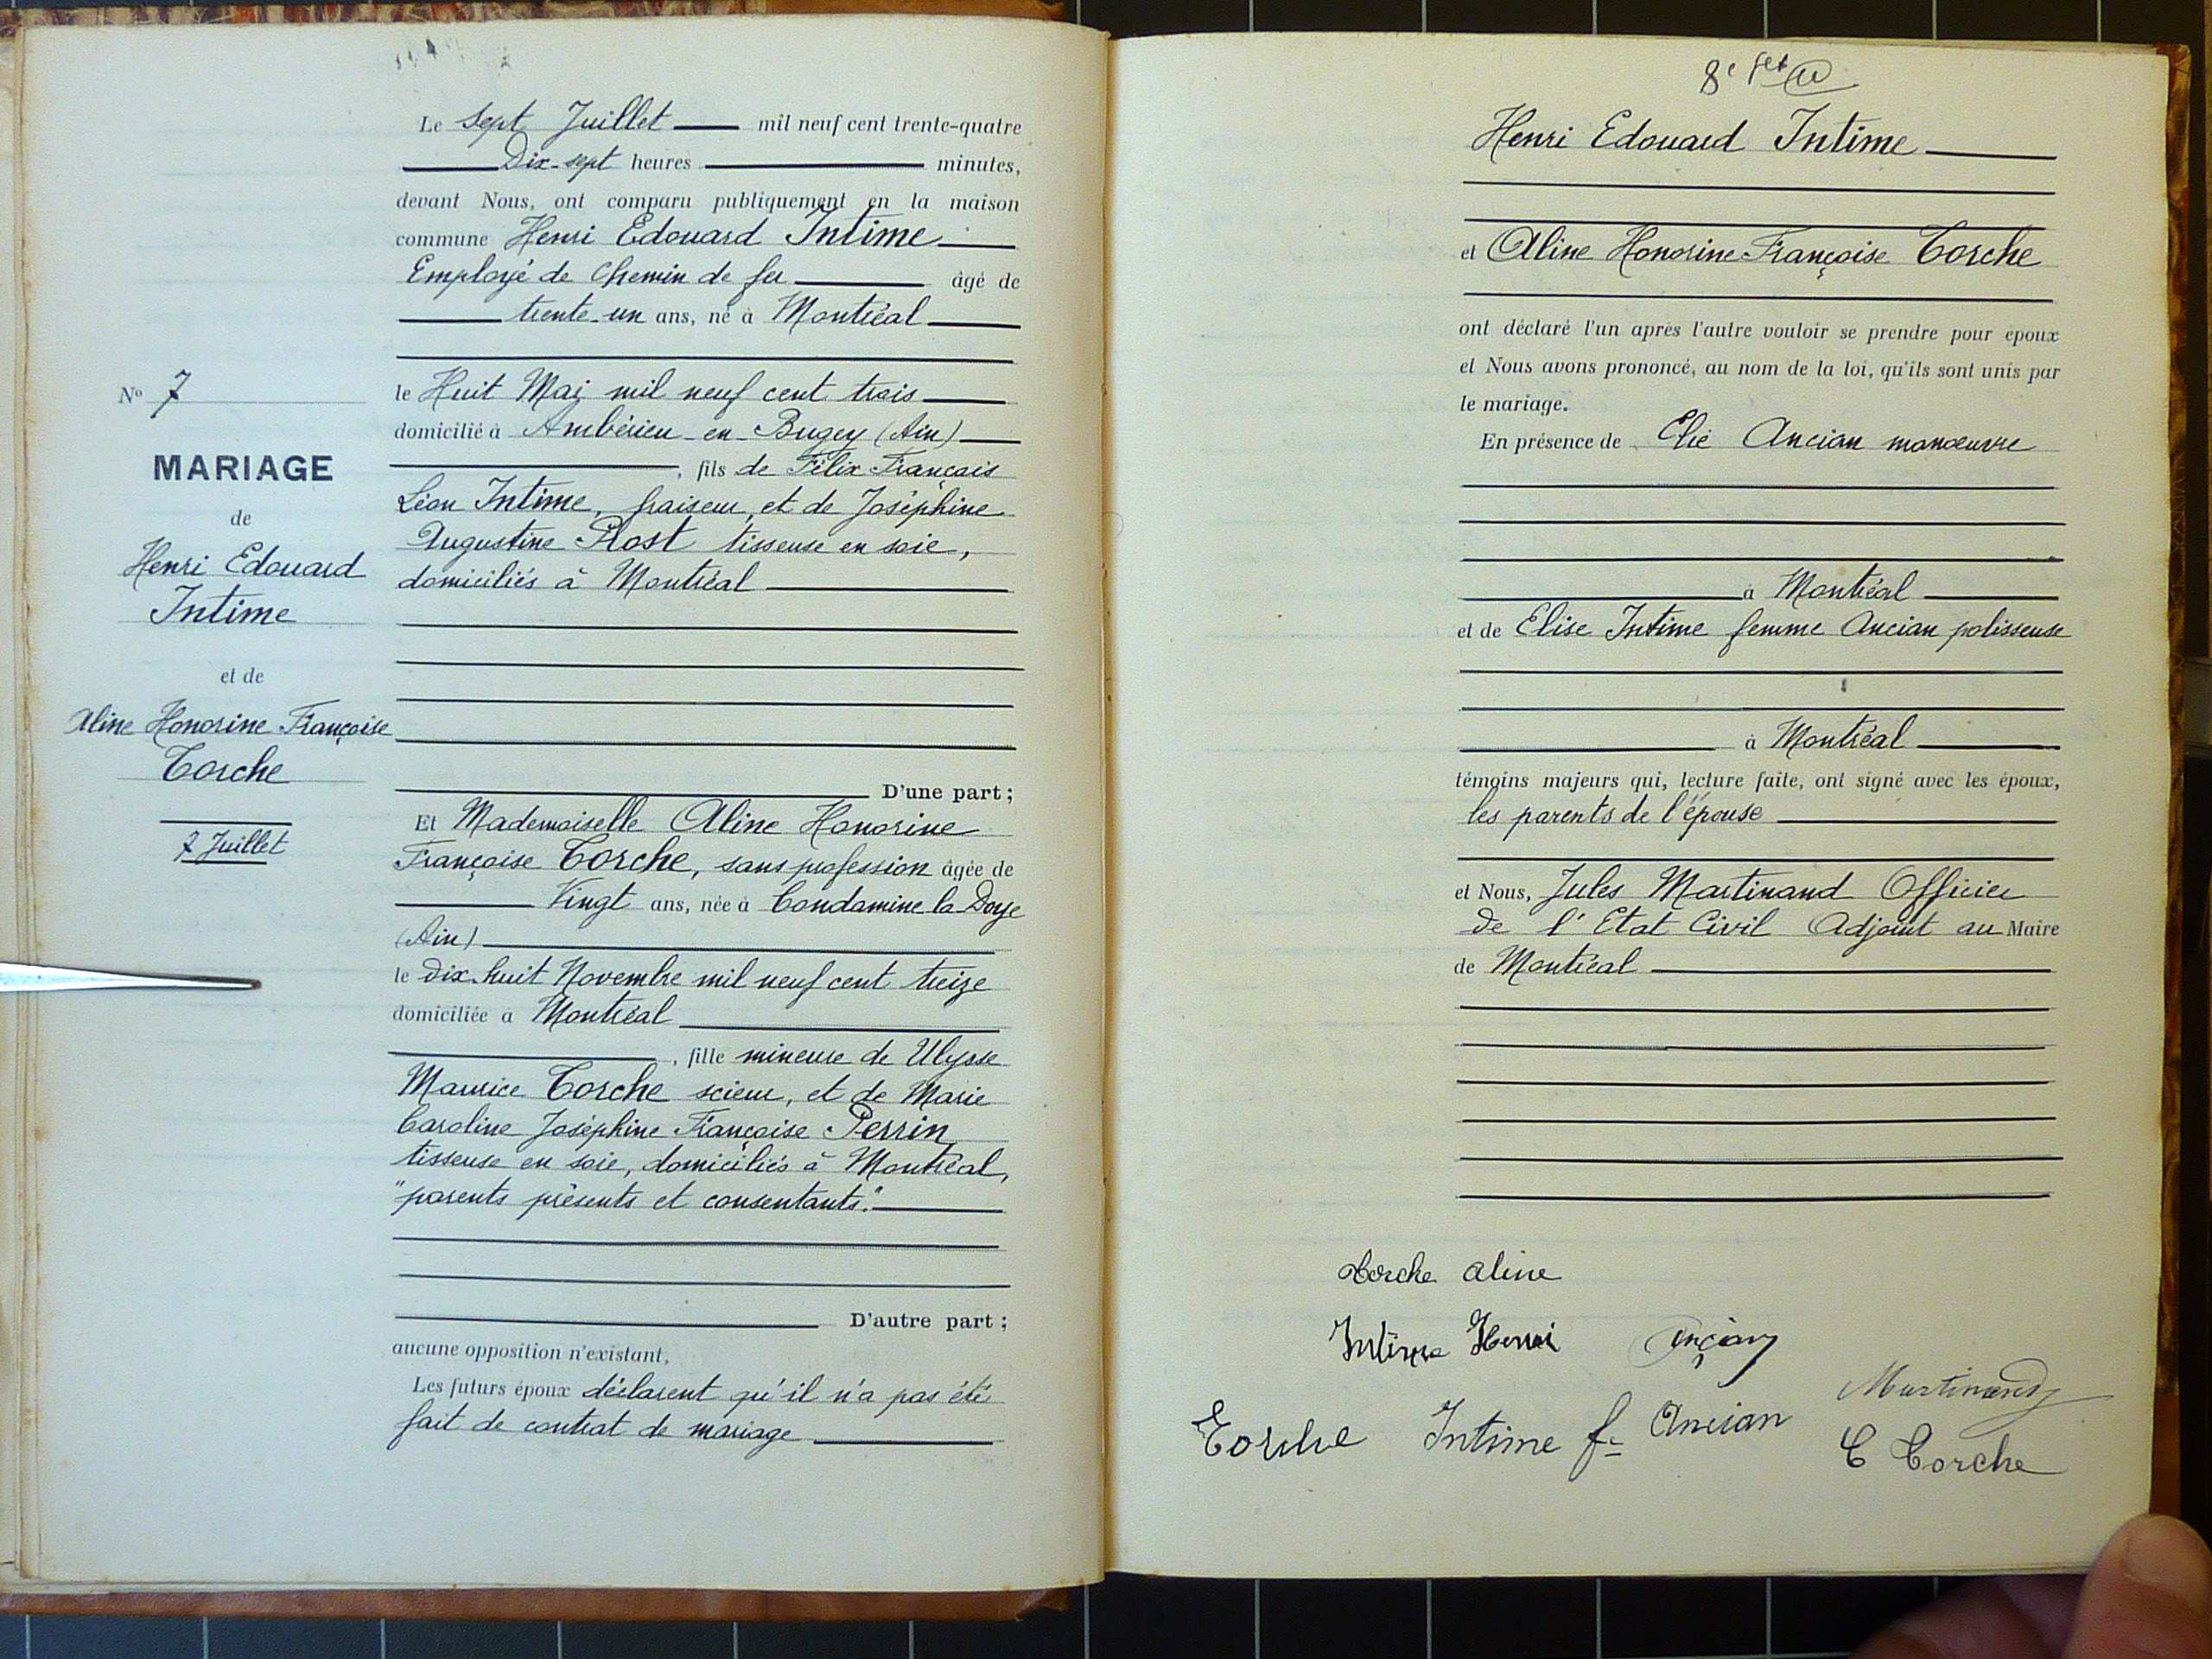 Le Sept Juillet mil neuf cent trente-quatre
Dix-sept heures minutes,
devant Nous, ont comparu publiquement en la maison
commune Henri Edouard Intime
Employé de Chemin de fer âgé de
trente-un ans, né à Montréal
le Huit Mai mil neuf cent trois
domicilié à Ambérieu-en-Bugey (Ain)
, fils de Félix Français
Léon Intime, fraiseur, et de Joséphine
Augustine Plost tisseuse en soie,
domiciliés à Montréal
No 7
MARIAGE
de
Henri Edouard
Intime
et de
Aline Honorine Françoise
Torche
7 Juillet
D'une part ;
Et Mademoiselle Aline Honorine
Françoise Torche, sans profession âgée de
Vingt ans, née à Condamine la Doye
(Ain)
le dix-huit Novembre mil neuf cent treize
domiciliée à Montréal
, fille mineure de Ulysse
Maurice Torche scieur, et de Marie
Caroline Joséphine Françoise Perrin
tisseuse en soie, domiciliés à Montréal,
"parents présents et consentants."
D'autre part ;
aucune opposition n'existant,
Les futurs époux déclarent qu'il n'a pas été
fait de contrat de mariage
8e
Henri Edouard Intime
et Aline Honorine Françoise Torche
ont déclaré l'un après l'autre vouloir se prendre pour époux
et Nous avons prononcé, au nom de la loi, qu'ils sont unis par
le mariage.
En présence de Elie Ancian manœuvre
à Montréal
et de Elise Intime femme Ancian polisseuse
à Montréal
témoins majeurs qui, lecture faite, ont signé avec les époux,
les parents de l'épouse
et Nous, Jules Martinand Officier
de l'Etat Civil Adjoint au Maire
de Montréal
Torche Aline
Intime Henri Ançian
Martinand
Torche Intime fe Ancian
C Torche